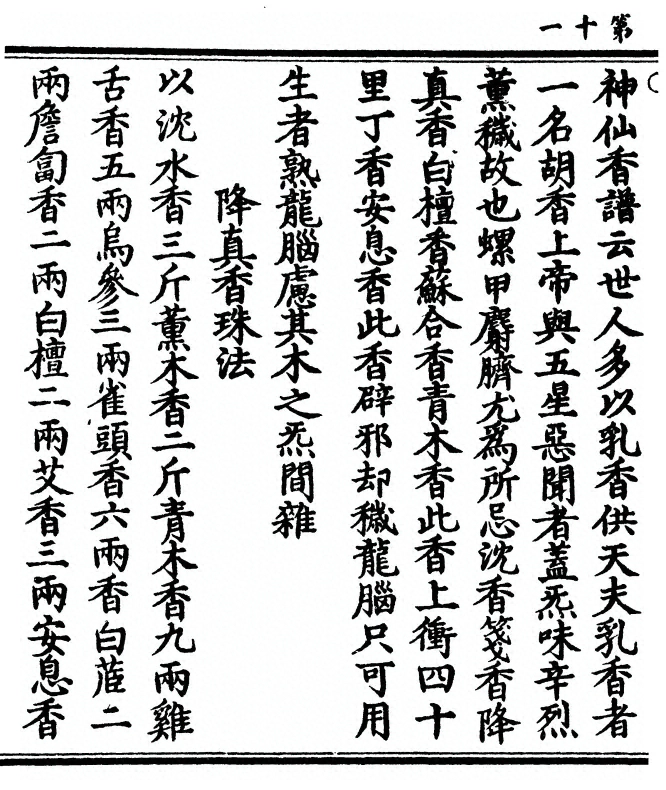 第十一
神仙香譜云世人多以乳香供天夫乳香者
一名胡香上帝與五星惡聞者蓋炁味辛烈
薰穢故也螺甲麝臍尤為所忌沈香箋香降
真香白檀香蘇合香青木香此香上衝四十
里丁香安息香此香辟邪却穢龍腦只可用
生者熟龍腦慮其木之炁間雜
降真香珠法
以沈水香三斤薰木香二斤青木香九兩雞
舌香五兩烏參三兩雀頭香六兩香白茝二
兩詹匐香二兩白檀二兩艾香三兩安息香